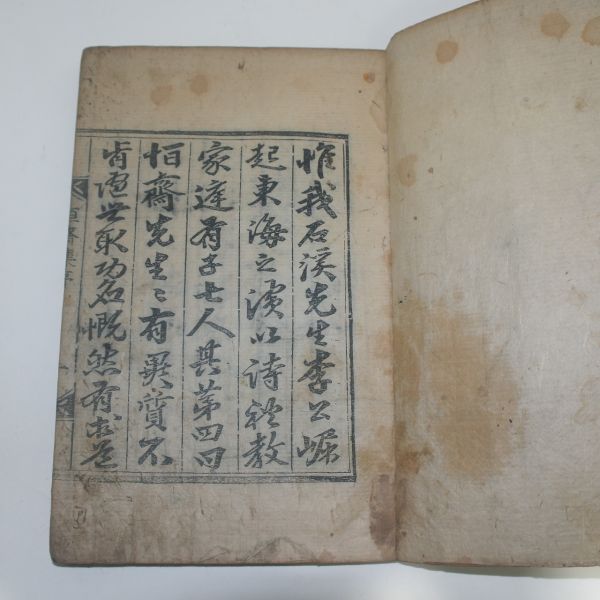 惟我石溪先生李公崛
起東海之濱以詩禮教
家庭有子七人其第四曰
恒齋先生〻有異質不
肯隨世取功名慨然有求道